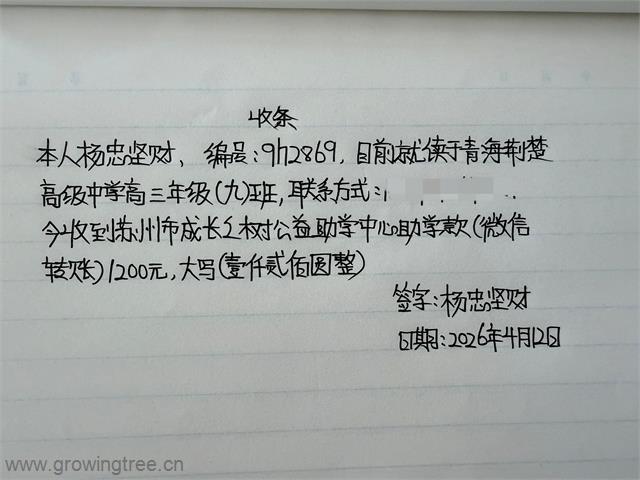 收条
本人杨忠坚财、编号:qh2869,目前就读于青海荆楚
高级中学高三年级(九)班,联系方式:1
今收到苏州市成长之树公益助学中心助学款(微信
转账)1200元,大写(壹仟贰佰圆整)
签字:杨忠坚财
日期:2026年4月12日
www.growingtree.cn